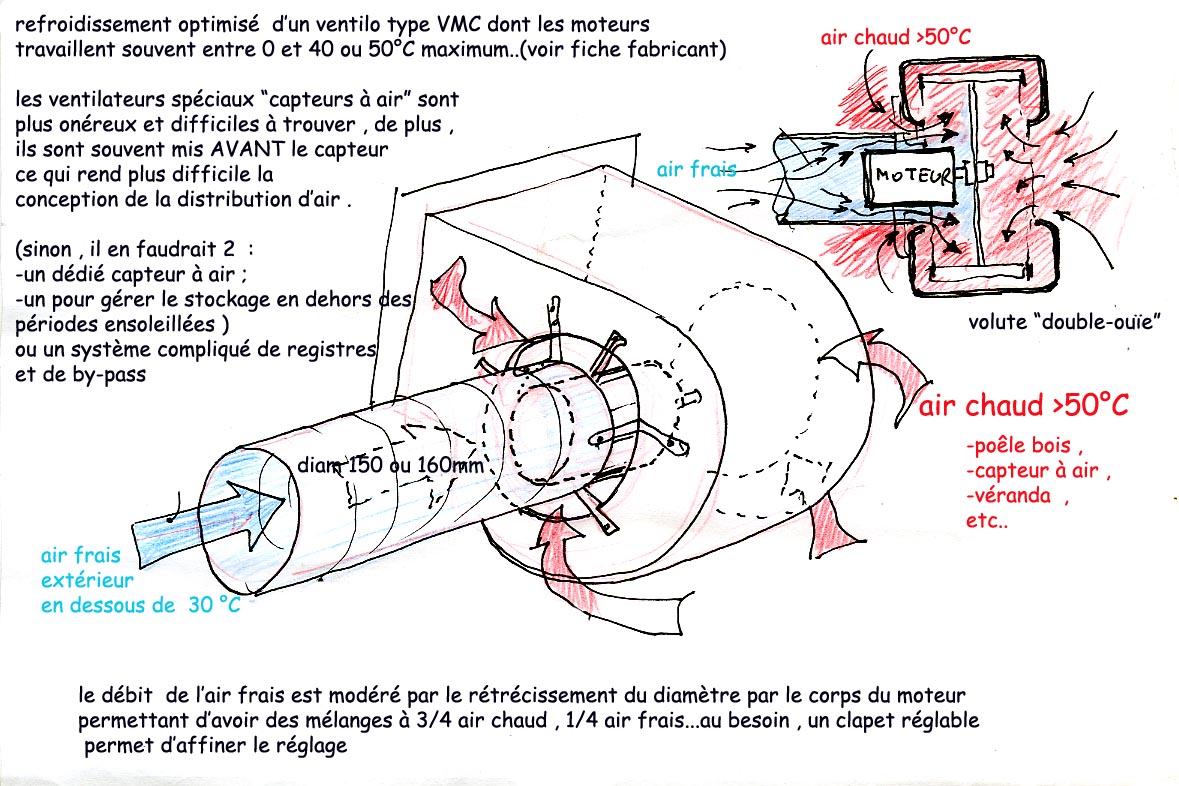 refroidissement optimisé d'un ventilo type VMC dont les moteurs
travaillent souvent entre 0 et 40 ou 50°C maximum..(voir fiche fabricant)
les ventilateurs spéciaux "capteurs à air" sont
plus onéreux et difficiles à trouver , de plus ,
ils sont souvent mis AVANT le capteur
ce qui rend plus difficile la
conception de la distribution d'air .
(sinon , il en faudrait 2 :
-un dédié capteur à air ;
-un pour gérer le stockage en dehors des
périodes ensoleillées )
ou un système compliqué de registres
et de by-pass
air chaud >50°C
air frais
MOTEUR
volute "double-ouïe"
air chaud >50°C
-poêle bois ,
-capteur à air ,
-véranda ,
etc..
diam 150 ou 160mm
air frais
extérieur
en dessous de 30 °C
le débit de l'air frais est modéré par le rétrécissement du diamètre par le corps du moteur
permettant d'avoir des mélanges à 3/4 air chaud , 1/4 air frais...au besoin , un clapet réglable
permet d'affiner le réglage